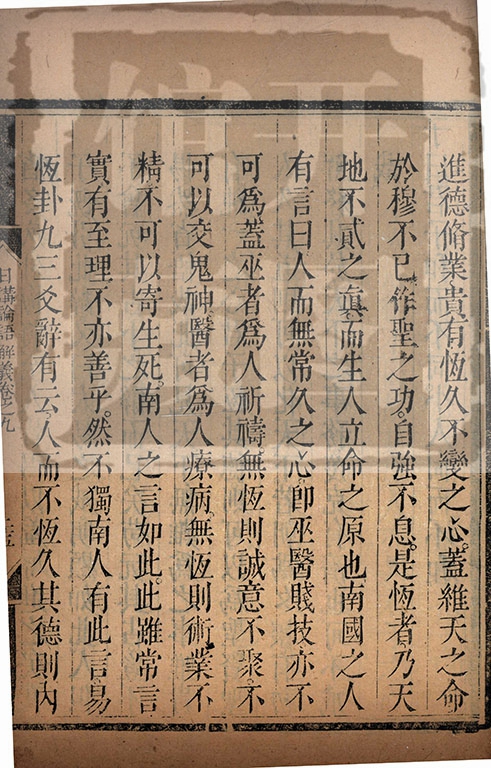 進德脩業貴有恆久不變之心。蓋維天之命
於穆不已。作聖之功。自強不息。是恆者。乃天
地不貳之眞。而生人立命之原也。南國之人
有言曰。人而無常久之心。卽巫醫賤技。亦不
可爲。蓋巫者爲人祈禱。無恆則誠意不聚。不
可以交鬼神。醫者爲人療病。無恆則術業不
精。不可以寄生死。南人之言如此。此雖常言
實有至理。不亦善乎。然不獨南人有此言。易
恆卦九三爻辭有云。人而不恆久其德。則內
日講論語解義卷之九